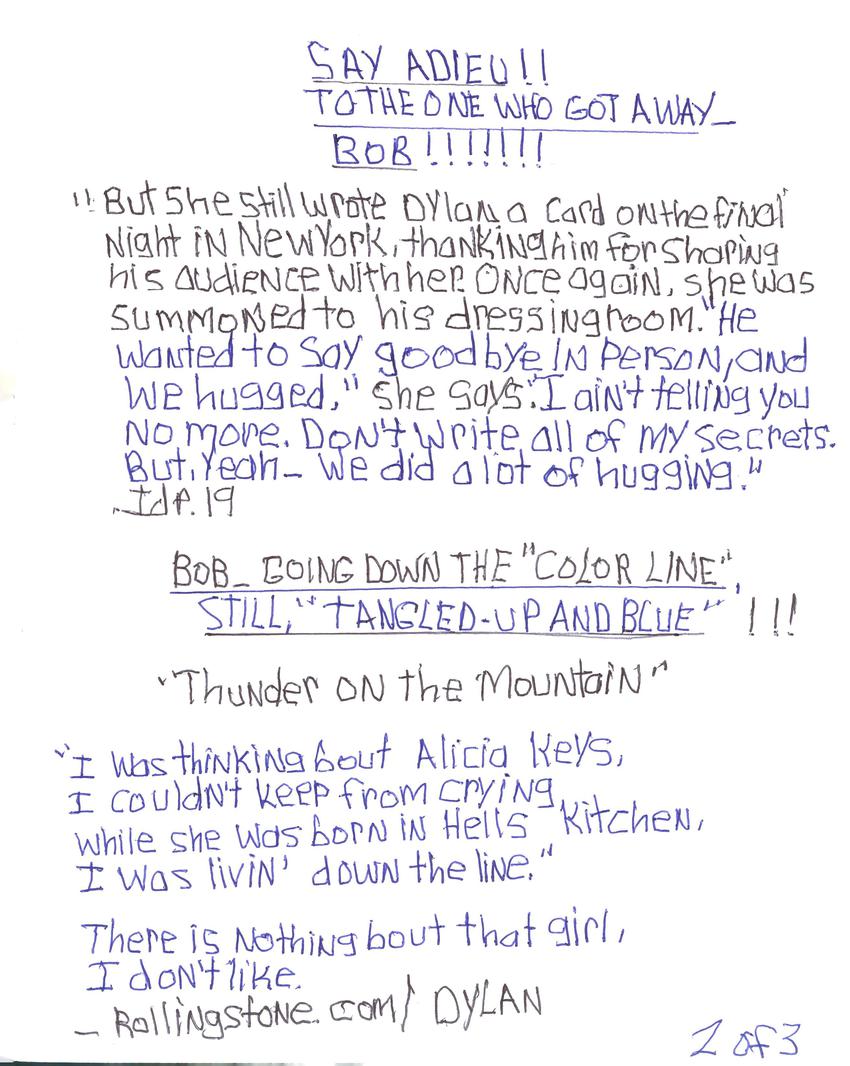 SAY ADIEU!!
TO THE ONE WHO GOT AWAY_
BOB!!!!!!!
"But she still wrote DYlan a card on the final
Night iN NewYork, thanking him for sharing
his audience with her. Once again, she was
summoned to his dressing room. "He
wanted to say goodbye IN Person, and
we hugged," she says. "I ain't telling you
No more. Don't write all of my secrets.
But, Yeah_ We did a lot of hugging."
_Id P. 19
BOB_ GOING DOWN THE "COLOR LINE",
STILL, "TANGLED-UP AND BLUE" !!!
"Thunder on the Mountain"
"I was thinking bout Alicia Keys,
I couldn't keep from crying,
while she was born in Hells Kitchen,
I was livin' down the line."
There is Nothing bout that girl,
I don't like.
_ Rollingstone.com/ DYLAN
2 of 3